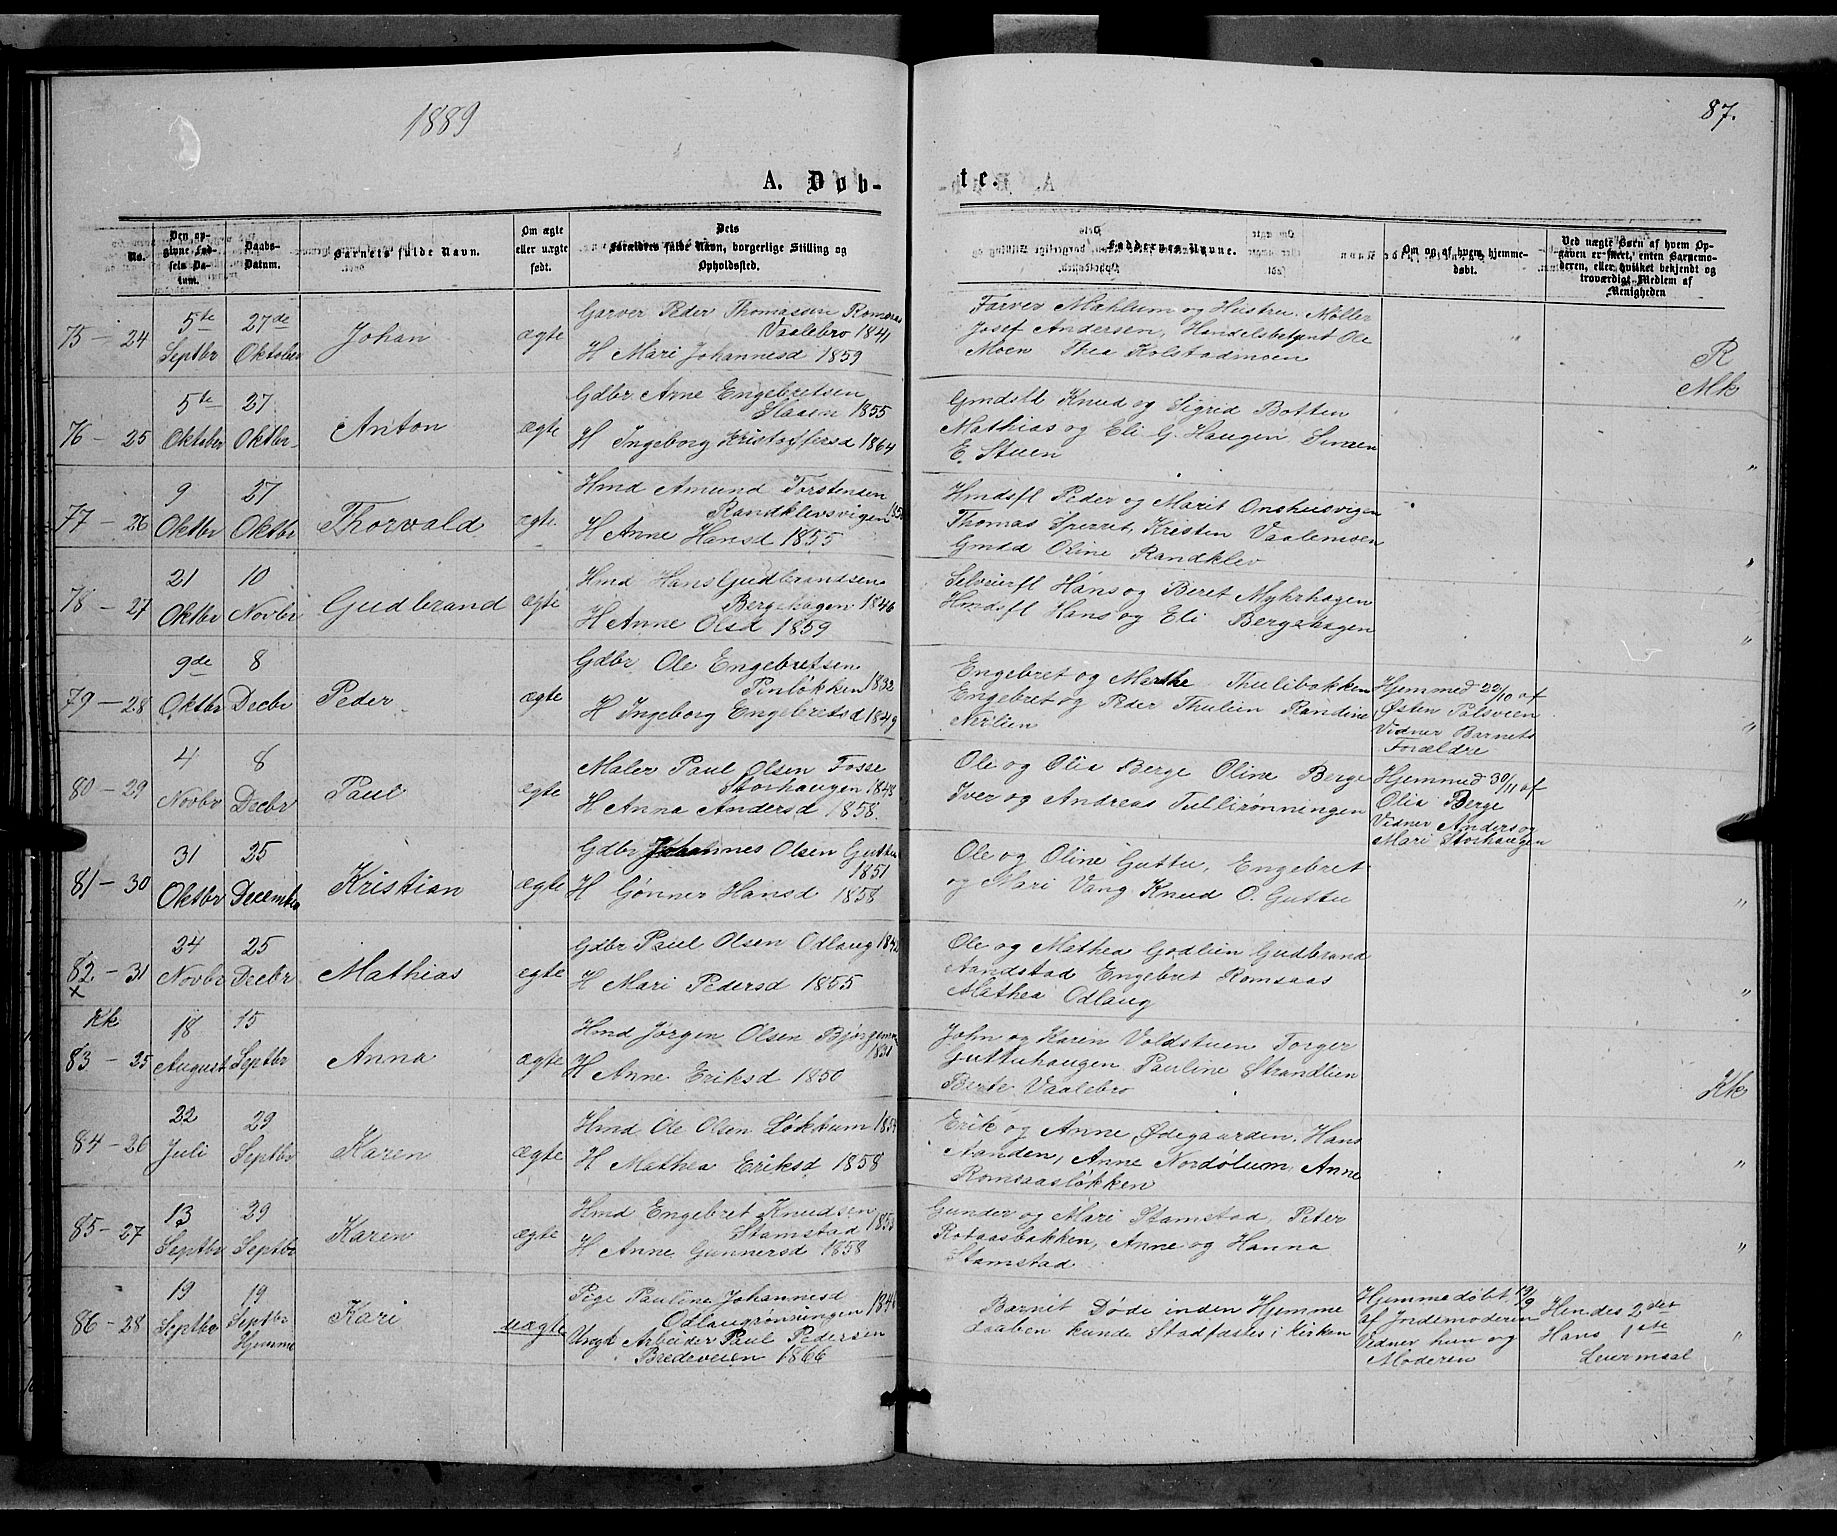 1889
87.
A. Døb-
te.
No.
Den op-
givne Fød-
sels Da-
tum.
Daabs-
Datum.
Barnets fulde Navn.
Om ægte
eller uægte
født.
Dets
Forældres fulde Navn, borgerlige Stilling og
Opholdssted.
Faddernes Navne.
Om og af hvem hjemme-
døbt.
Ved uægte Børn af hvem Op-
gaven er skeet, enten Barnemo-
deren, eller hvilket bekjendt og
troværdigt Medlem af
Menigheden
75 - 24
5te
Septbr
27de
Oktober
Johan
ægte
Garver Peder Thomassen Romsaas
Vaalebro 1841
H Mari Johannesd 1859
Farver Mæhlum og Hustru. Møller
Josef Andersen, Handelsbetjent Ole
Moen Thea Kolstadmoen
R
Mk
76 - 25
5te
Oktober
27
Oktbr
Anton
ægte
Gdbr Arne Engebretsen
1855
H Ingeborg Kristoffersd 1864
Knud og Sigrid Botten
Mathias og Eli G. Haugen
E. Stuen
"
77 - 26
9
Oktbr
27
Oktbr
Thorvald
ægte
Hmd Amund Torstensen
Randklevsvigen
H Anne Hansd 1855
Hmdsfl Peder og Marit Onshusvigen
Thomas Sperret, Kristen Vaalemoen
Oline Randklev
"
78 - 27
21
Oktbr
10
Novbr
Gudbrand
ægte
Hmd Hans Gudbrandsen
Bergehagen 1846
H Anne Olsd 1859
Selveierfl Hans og Beret Myhrhagen
Hmdsfl Hans og Eli Bergehagen
"
79 - 28
9de
Oktbr
8
Decbr
Peder
ægte
Gdbr Ole Engebretsen
1832
H Ingeborg Engebretsd 1849
Engebret og Marthe Thulibakken
Engebret og Peder Thulien Randine
Nerlien
Hjemmed 22/10 af
Østen Polsveen
Vidner Barnets
Forældre
"
80 - 29
4
Novbr
8
Decbr
Paul
ægte
Maler Paul Olsen Fosse
Storhaugen 1848
H Anna Andersd 1858.
Ole og Olia Berge Oline Berge
Iver og Andreas Tullirønningen
Hjemmed 30/11 af
Olia Berge
Vidner Anders og
Mari Storhaugen
"
81 - 30
31
Oktbr
25
December
Kristian
ægte
Gdbr Johannes Olsen Guttu
1851
H Gønner Hansd 1858
Ole og Oline Guttu, Engebret
og Mari Vang Knud O. Guttu
"
82 - 31
x
24
Novbr
25
Decbr
Mathias
ægte
Gdbr Paul Olsen Odlaug
H Mari Pedersd 1855
Ole og Mathea Godlien Gudbrand
Aandstad Engebret Romsaas
Mathea Odlaug
"
Kk
83 - 25
18
August
15
Septbr
Anna
ægte
Hmd Jørgen Olsen
1831
H Anne Eriksd 1850
John og Karen Voldstuen Torger
Guttuhaugen Pauline Strandlien
Berte Vaalebro
Kk
84 - 26
22
Juli
29
Septbr
Karen
ægte
Hmd Ole Olsen Løkkum
H Mathea Eriksd 1858
Erik og Anne Ødegaarden. Hans
Aanden, Anne Nordølum, Anne
Romsaasløkken
"
85 - 27
13
Septbr
29
Septbr
Karen
ægte
Hmd Engebret Knudsen
Stamstad
H Anne Gunnersd 1858
Gunder og Mari Stamstad, Peter
Rotaasbakken, Anne og Hanna
Stamstad
"
86 - 28
19
Septbr
19
Septbr
Hjemme
Kari
uægte
Pige Pauline Johannesd
Odlaugrønningen
Ungk Arbeider Paul Pedersen
Bredeveien 1866
Barnet Døde inden Hjemme
daaben kunde Stadfæstes i Kirken
Hjemmedøbt 19/9
af Jordemoderen
Vidner hun og
Moderen
Hendes 2det
Hans 1ste
Leiermaal
"